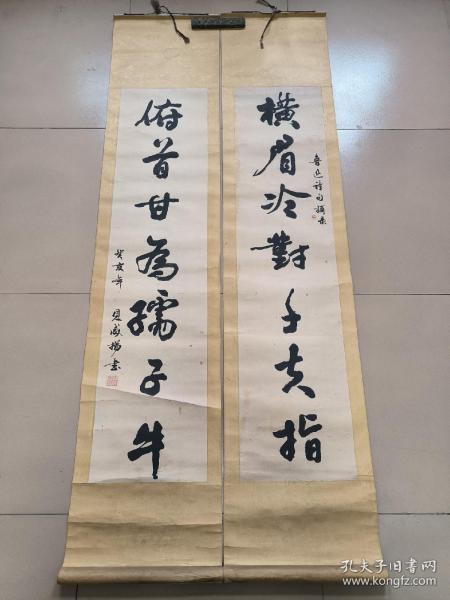 橫眉冷對千夫指
魯迅詩句
俯首甘為孺子牛
癸亥年
書
孔夫子旧书网
www.kongfz.com